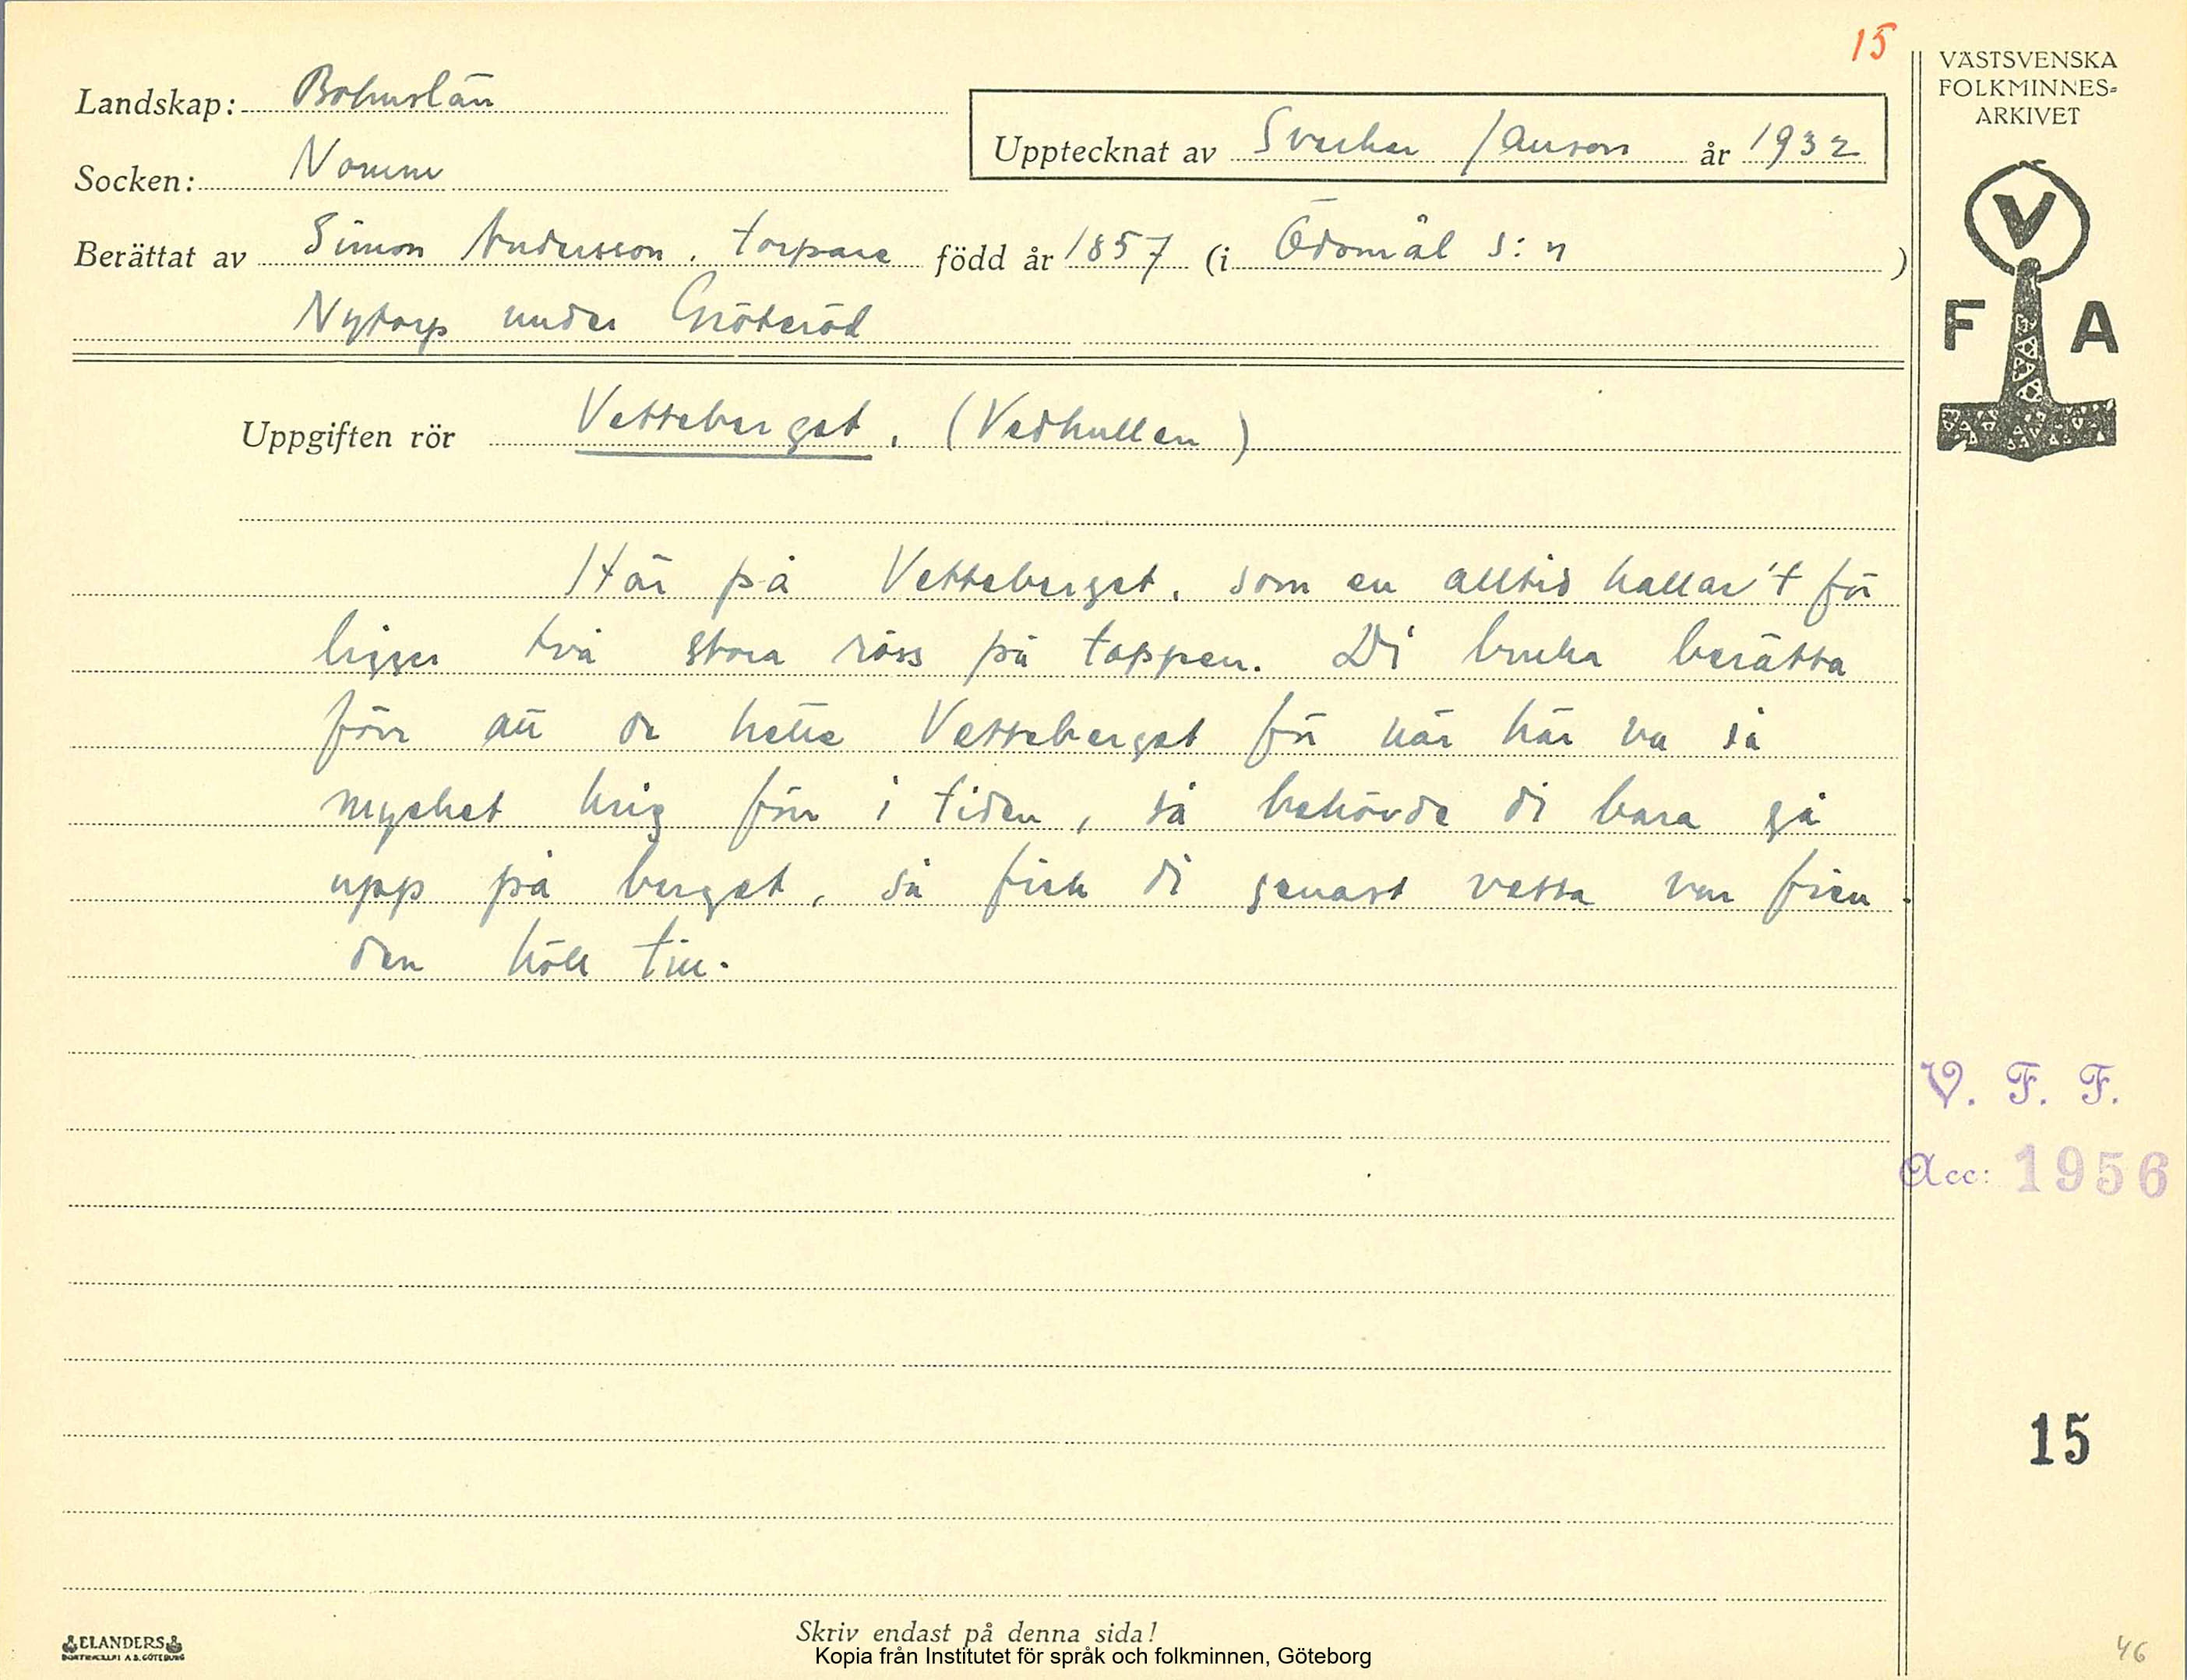 15
VÄSTSVENSKA
FOLKMINNES-
ARKIVET
Landskap: Bohuslän
Upptecknat av Sverker Janson år 1932
Socken: Norum
Berättat av Simon Andersson, torpare född år 1857 (i Ödsmål s:n )
Nytorp under Gröteröd
V
F A
Uppgiften rör Vetteberget, (Vedhullen)
Här på Vetteberget, som en alltid kallar't för
ligger två stora röss på toppen. Di bruka berätta
förr att de hette Vetteberget för när här va så
mycket krig förr i tiden, så behövde di bara gå
upp på berget, så fick di genast vetta var fien-
den höll till.
V. F. F.
Acc: 1956
15
Skriv endast på denna sida!
ELANDERS
GÖTEBORG
Kopia från Institutet för språk och folkminnen, Göteborg
46